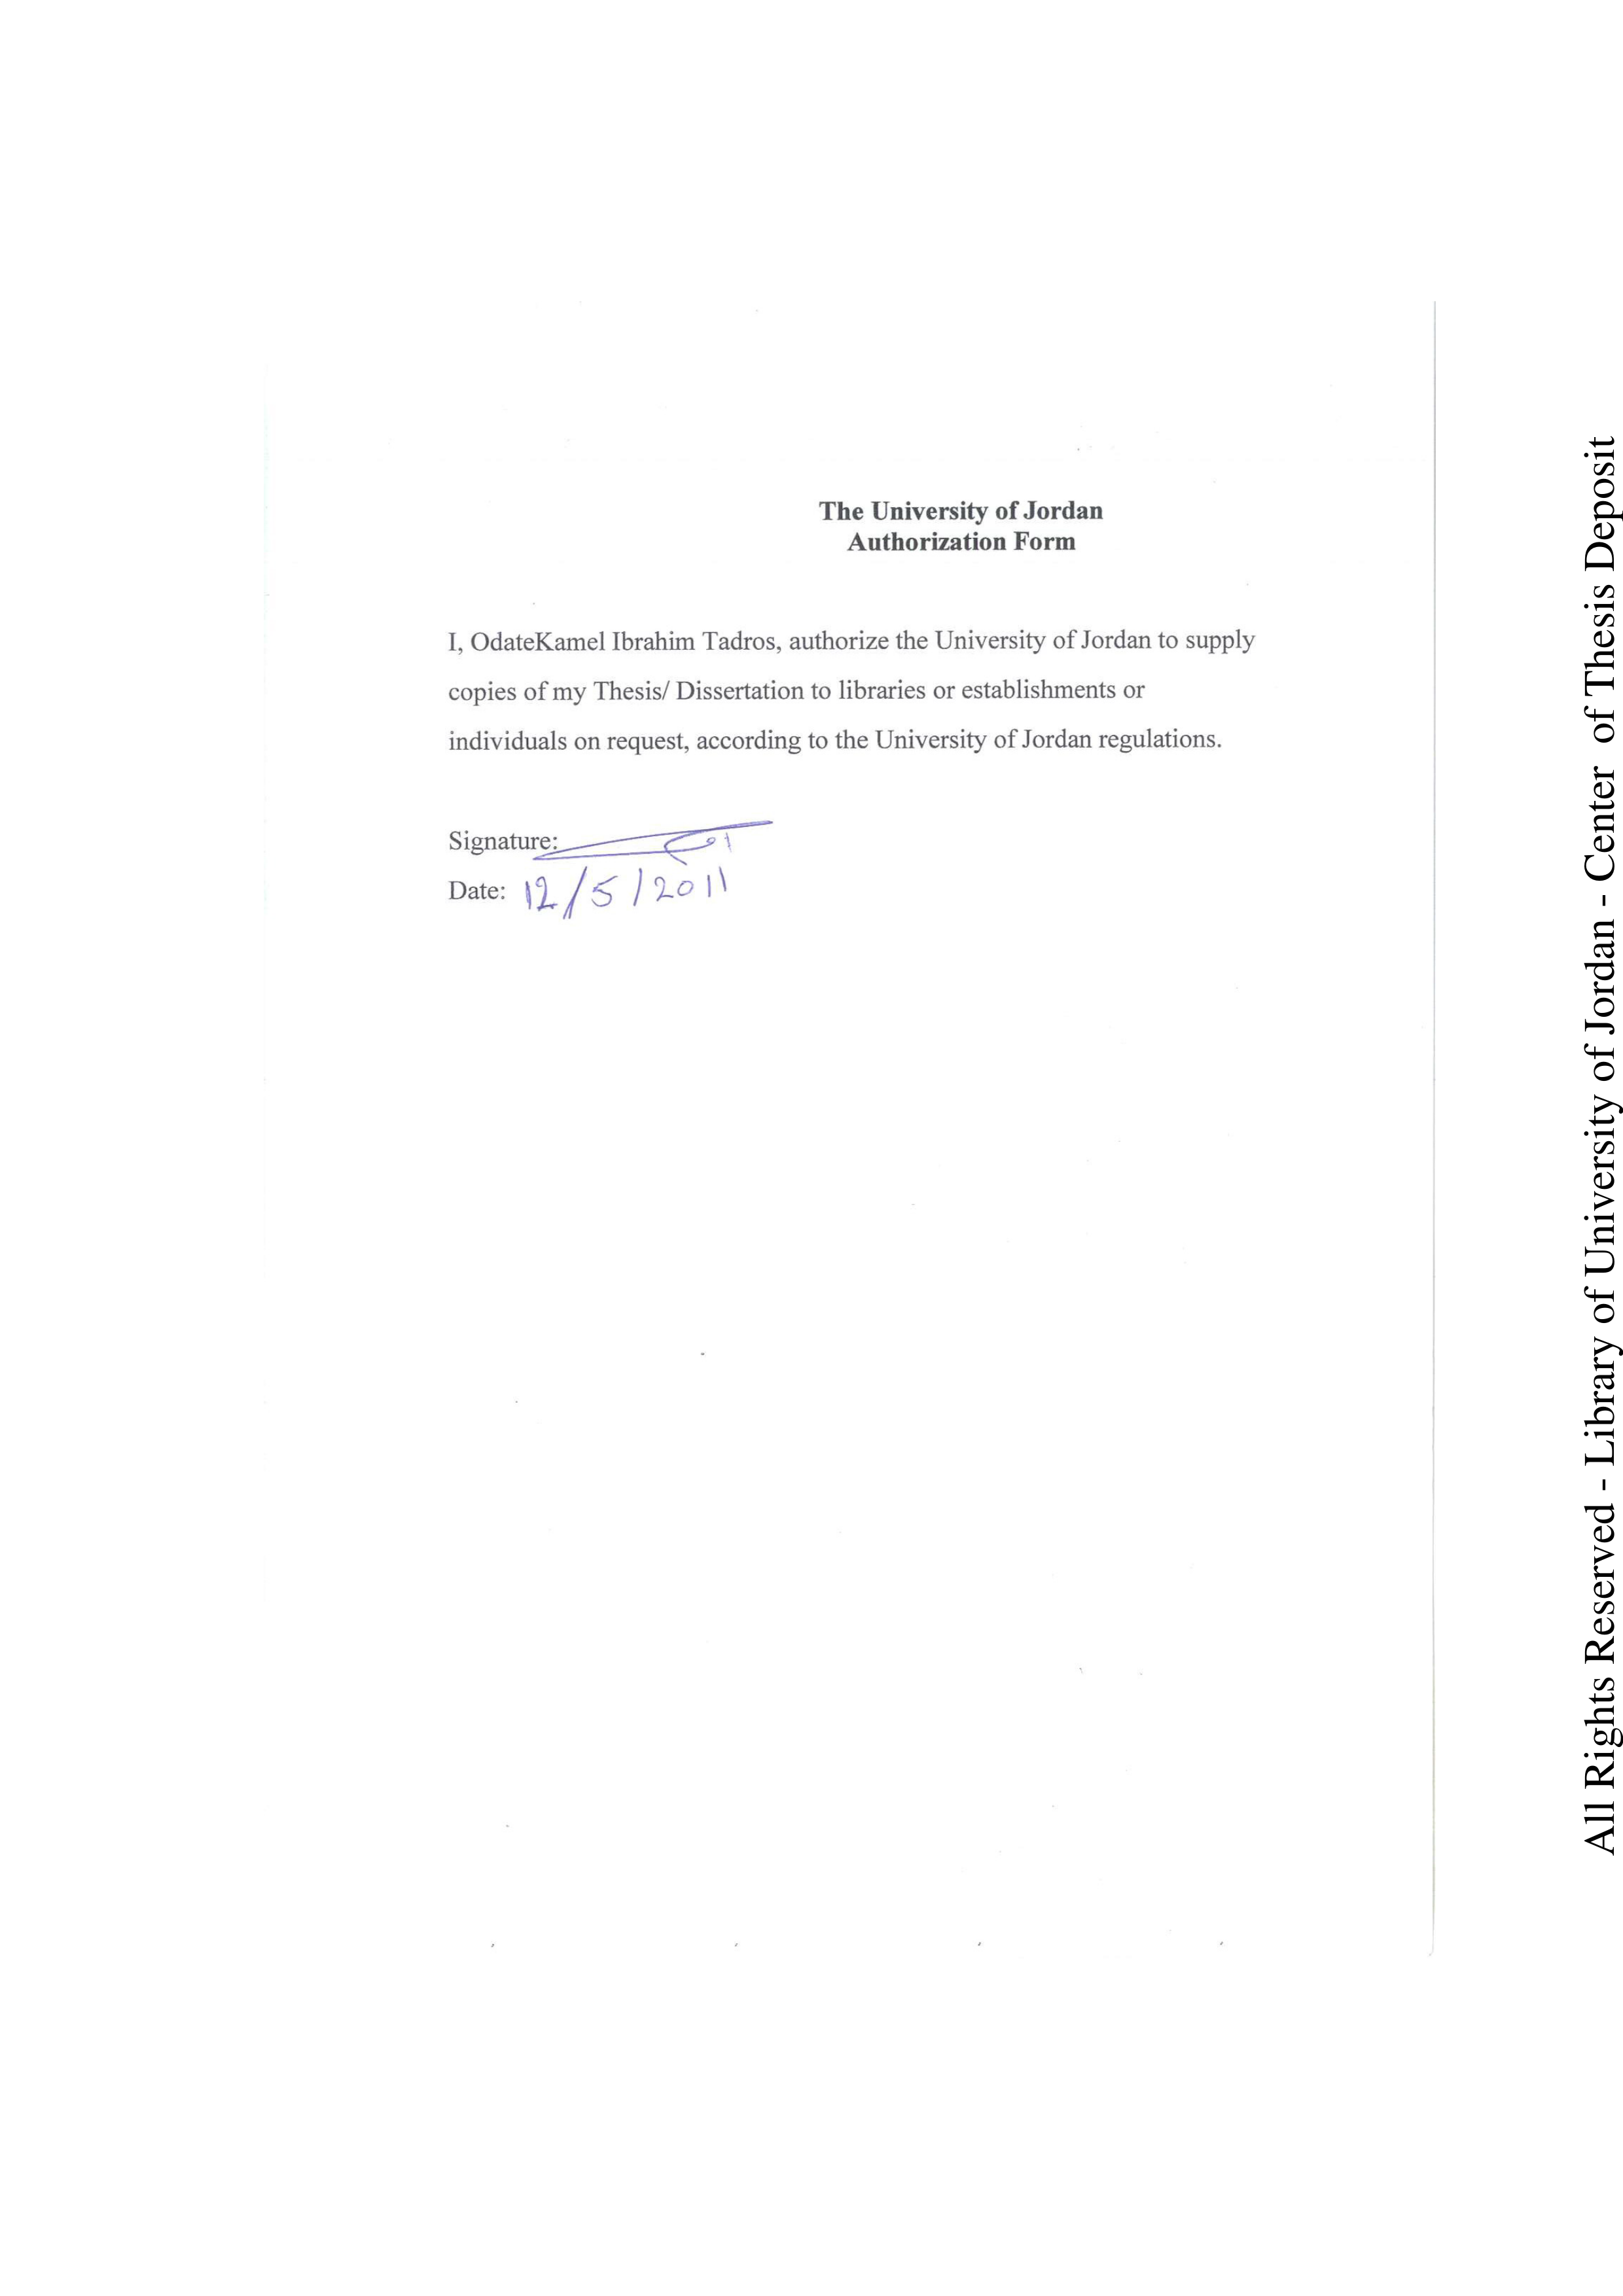 The University of Jordan
Authorization Form
I, OdateKamel Ibrahim Tadros, authorize the University of Jordan to supply
copies of my Thesis/ Dissertation to libraries or establishments or
individuals on request, according to the University of Jordan regulations.
Signature:
Date: 12/5/2011
All Rights Reserved - Library of University of Jordan - Center of Thesis Deposit